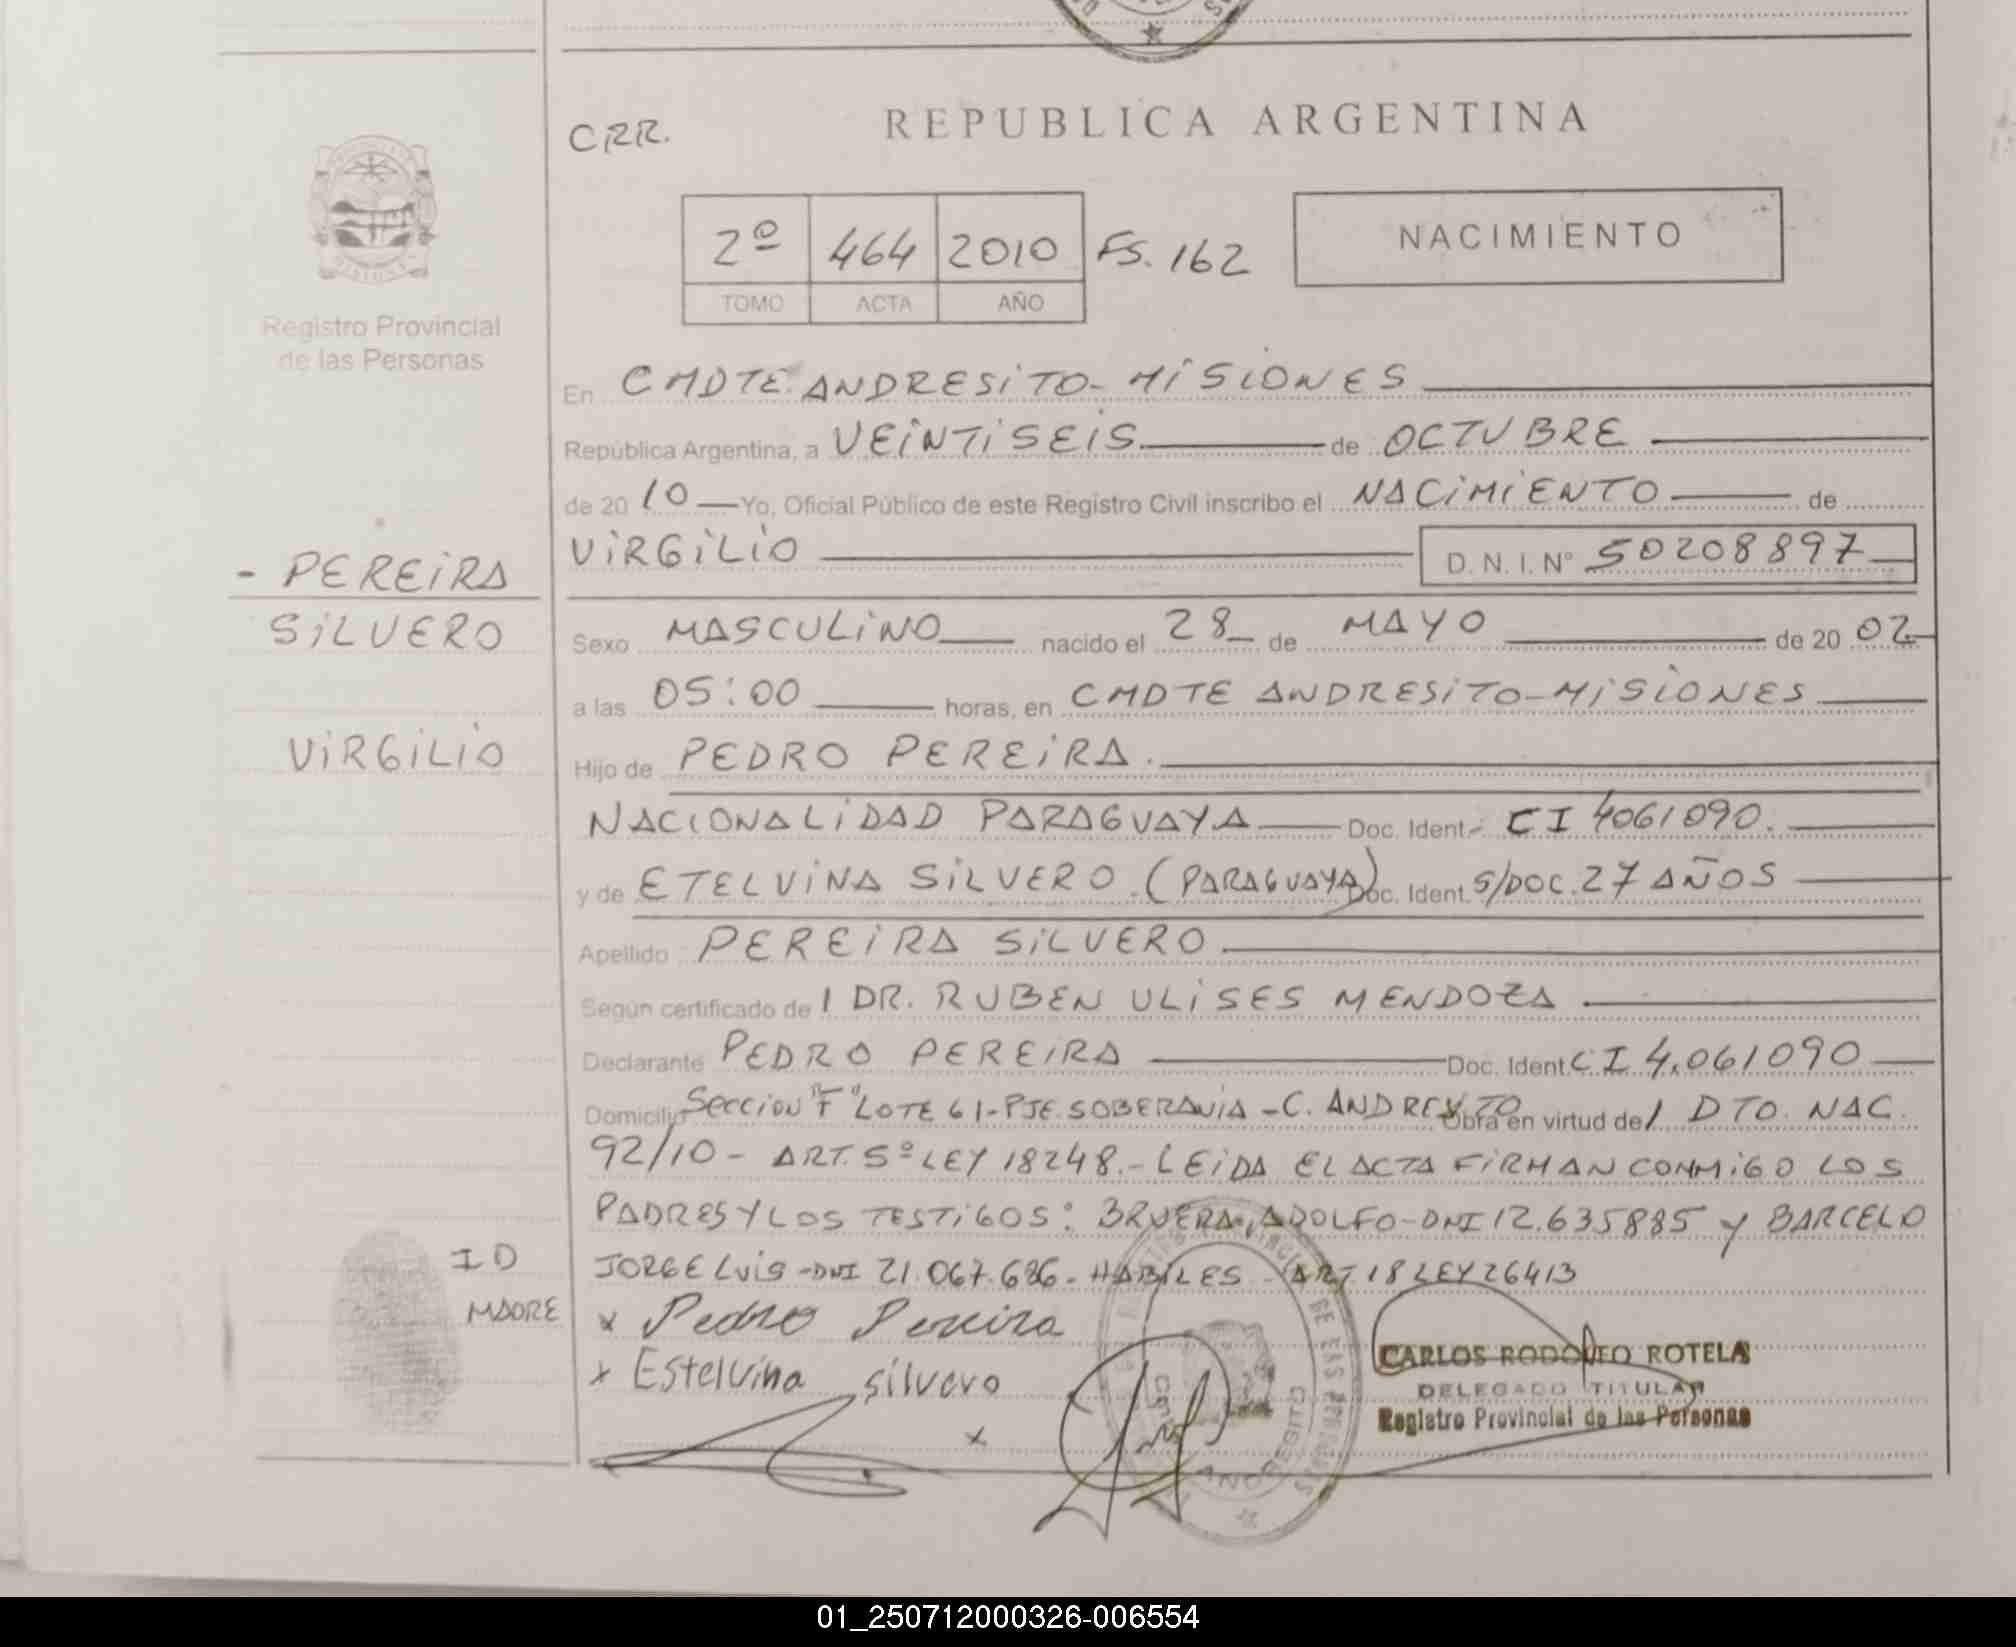 REPUBLICA ARGENTINA
CRR.
2º 464 2010 FS. 162
TOMO ACTA AÑO
NACIMIENTO
Registro Provincial
de las Personas
En CMDTE ANDRESITO - MISIONES
República Argentina, a VEINTISEIS de OCTUBRE
de 20 10 Yo, Oficial Público de este Registro Civil inscribo el NACIMIENTO de
VIRGILIO D. N. I. Nº 50208897
- PEREIRA
SILVERO
VIRGILIO
Sexo MASCULINO nacido el 28 de MAYO de 20 02
a las 05:00 horas, en CMDTE ANDRESITO - MISIONES
Hijo de PEDRO PEREIRA.
NACIONALIDAD PARAGUAYA Doc. Ident. CI 4061090.
y de ETELVINA SILVERO. (PARAGUAYA) Doc. Ident. S/DOC. 27 AÑOS
Apellido PEREIRA SILVERO
Según certificado de 1 DR. RUBEN ULISES MENDOZA
Declarante PEDRO PEREIRA Doc. Ident CI 4.061090
Domicilio SECCION "F" LOTE 61 - PJE. SOBERANIA - C. ANDRESITO Obra en virtud de 1 DTO. NAC.
92/10 - ART. 5º LEY 18248. - LEIDA EL ACTA FIRMAN CONMIGO LOS
PADRES Y LOS TESTIGOS: BRUERA, ADOLFO - DNI 12.635885 y BARCELO
JORGE LUIS - DNI 21.067.686 - HABILES - ART. 18 LEY 26413
ID
MADRE
x Pedro Pereira
x Estelvina silvero
x
CARLOS RODOLFO ROTELA
DELEGADO TITULAR
Registro Provincial de las Personas
ANDRESITO
01_250712000326-006554